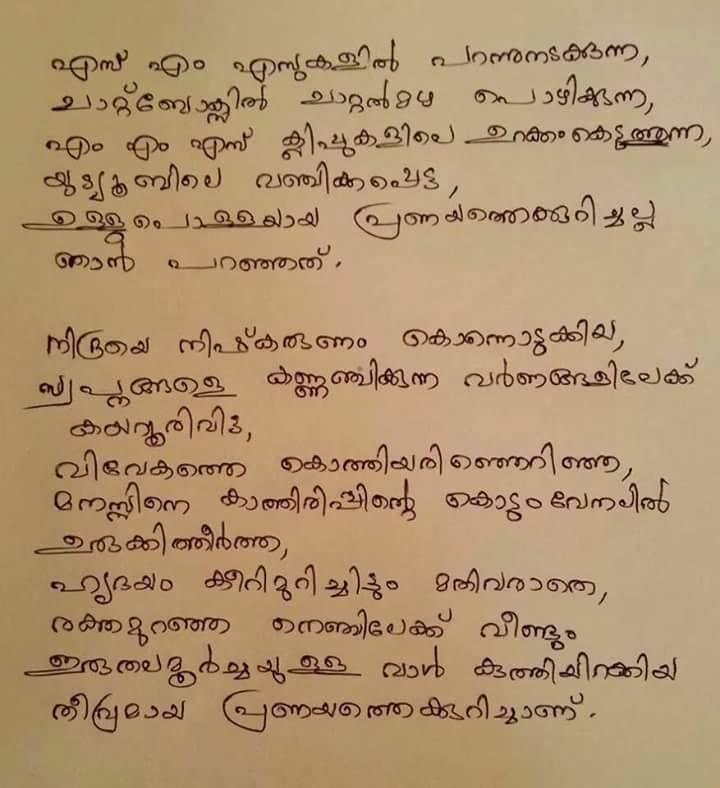 എസ് എം എസുകളിൽ പറന്നുനടക്കുന്ന,
ചാറ്റ്ബോക്സിൽ ചാറ്റൽമഴ പൊഴിക്കുന്ന,
എം എം എസ് ക്ലിപ്പുകളിലെ ഉറക്കംകെടുത്തുന്ന,
യുട്യൂബിലെ വഞ്ചിക്കപ്പെട്ട,
ഉള്ളുപൊള്ളയായ പ്രണയത്തെക്കുറിച്ചല്ല
ഞാൻ പറഞ്ഞത്.
നിദ്രയെ നിഷ്കരുണം കൊന്നൊടുക്കിയ,
സ്വപ്നങ്ങളെ കണ്ണഞ്ചിക്കുന്ന വർണങ്ങളിലേക്ക്
കയറൂരിവിട്ട,
വിവേകത്തെ കൊത്തിയരിഞ്ഞെറിഞ്ഞ,
മനസ്സിനെ കാത്തിരിപ്പിന്റെ കൊടുംവേനലിൽ
ഉരുക്കിത്തീർത്ത,
ഹൃദയം കീറിമുറിച്ചിട്ടും മതിവരാതെ,
രക്തമുറഞ്ഞ നെഞ്ചിലേക്ക് വീണ്ടും
ഇരുതലമൂർച്ചയുള്ള വാൾ കുത്തിയിറക്കിയ
തീവ്രമായ പ്രണയത്തെക്കുറിച്ചാണ്.